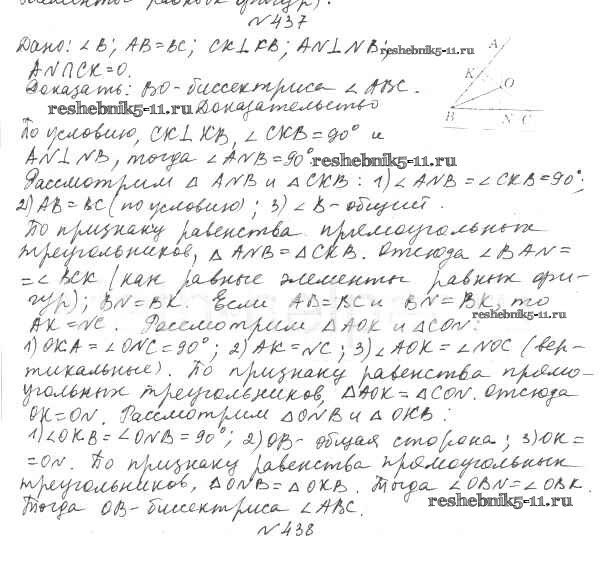 №437
Дано: ∠B; AB=BC; CK⊥KB; AN⊥NB;
reshebnik5-11.ru
AN∩CK=O.
Доказать: BO-биссектриса ∠ABC.
reshebnik5-11.ru Доказательство
A
K
O
B
N C
По условию, CK⊥KB, ∠CKB=90° и
AN⊥NB, тогда ∠ANB=90°.
reshebnik5-11.ru
Рассмотрим △ ANB и △ CKB: 1) ∠ANB=∠CKB=90°;
2) AB=BC (по условию); 3) ∠B-общий.
По признаку равенства прямоугольных
треугольников, △ANB=△CKB. Отсюда ∠BAN=
=∠BCK (как равные элементы равных фи-
гур); BN=BK. Если AB=BC и BN=BK, то
reshebnik5-11.ru
AK=NC. Рассмотрим △AOK и △CON:
1) OKA=∠ONC=90°; 2) AK=NC; 3) ∠AOK=∠NOC (вер-
тикальные). По признаку равенства прямо-
угольных треугольников, △AOK=△CON. Отсюда
OK=ON. Рассмотрим △ONB и △OKB:
1) ∠OKB=∠ONB=90°; 2) OB-общая сторона; 3) OK=
=ON. По признаку равенства прямоугольных
треугольников, △ONB=△OKB. Тогда ∠OBN=∠OBK.
reshebnik5-11.ru
Тогда OB-биссектриса ∠ABC.
№438